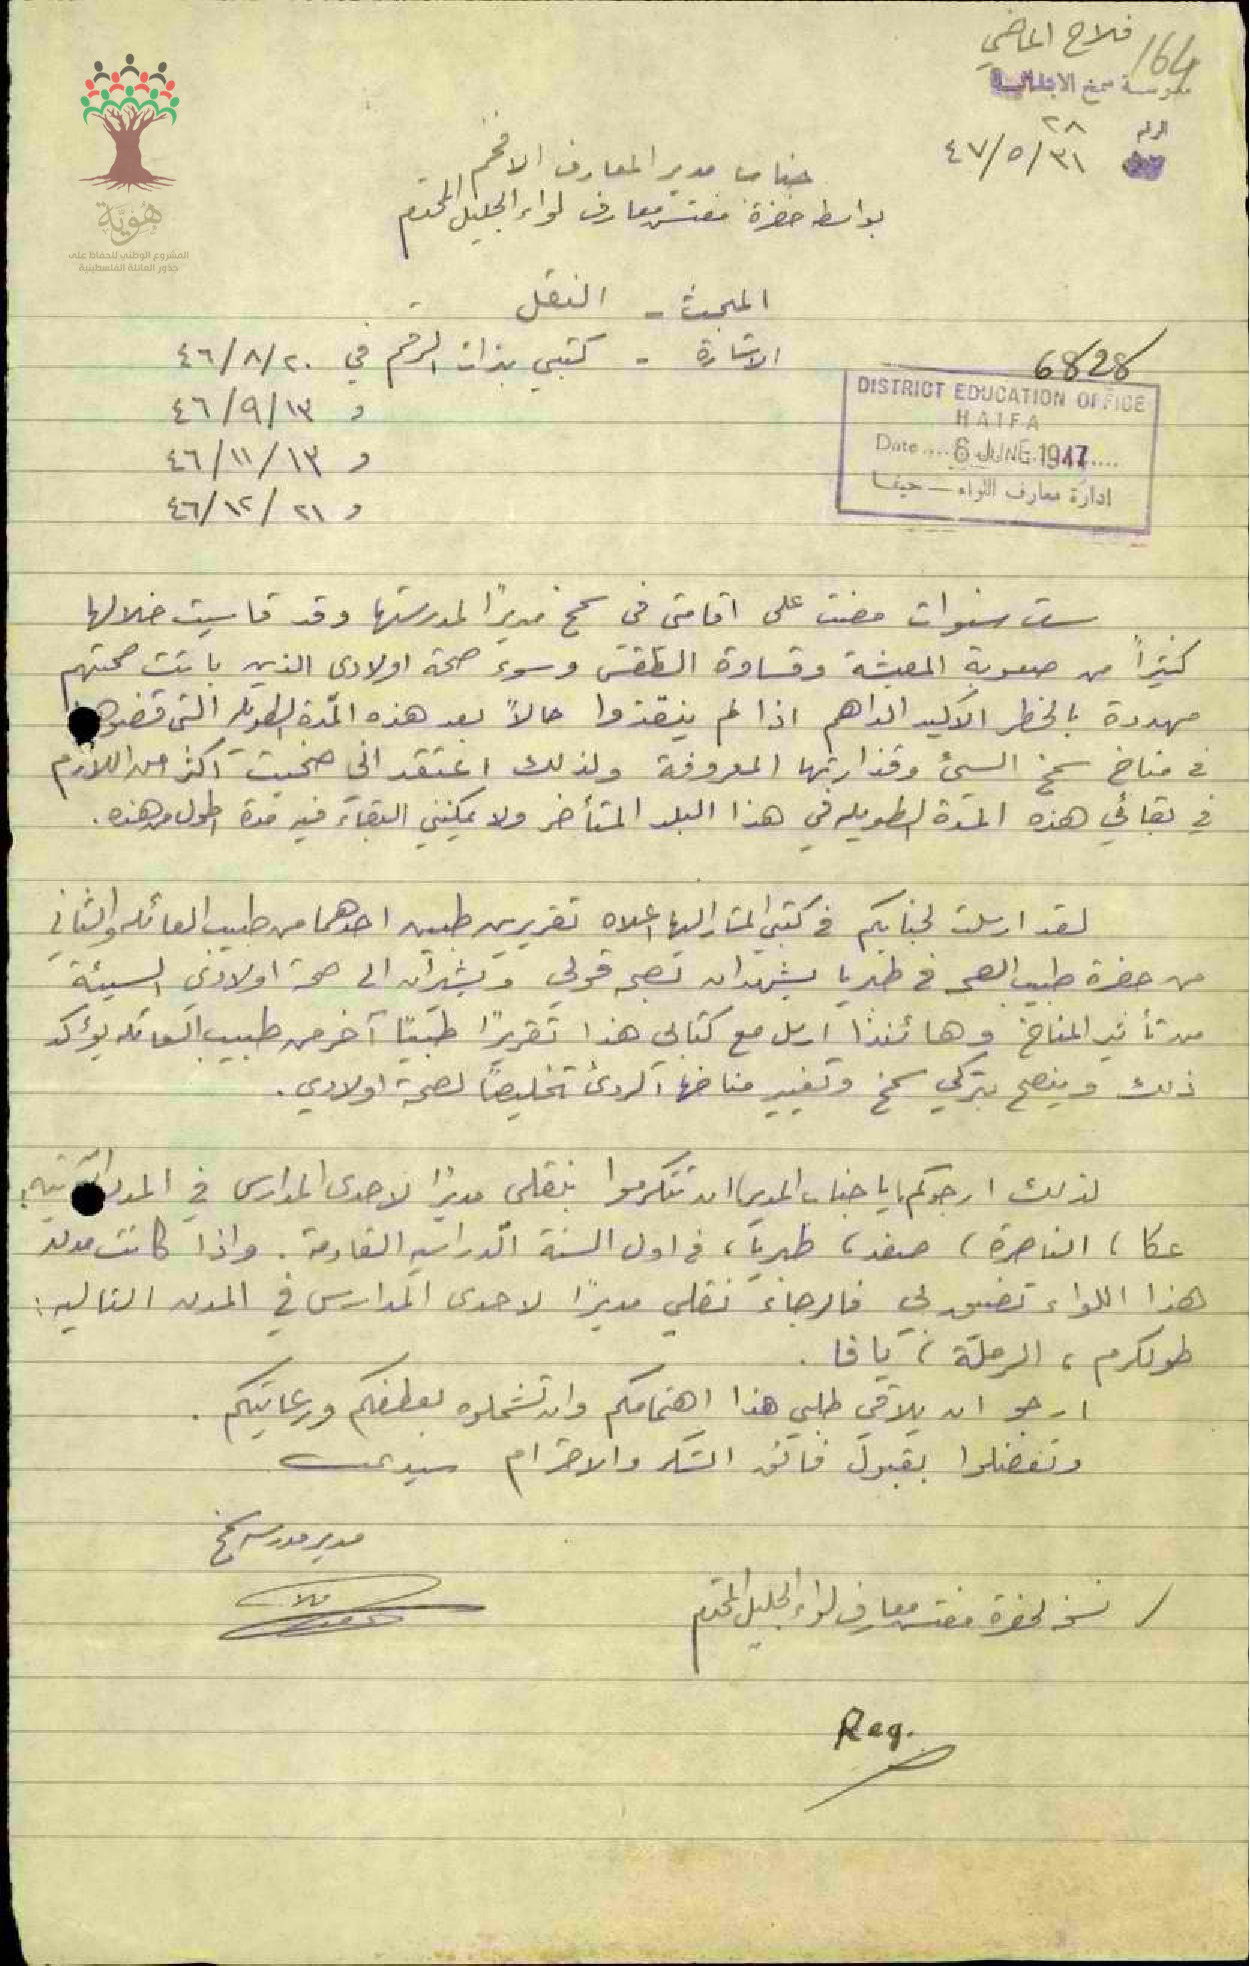 فلاح الماضي
164
مدرسة سمخ الابتدائية
الرقم ٢٨
٤٧/٥/٣١
هُوِيَّة
المشروع الوطني للحفاظ على
جذور العائلة الفلسطينية
جناب مدير المعارف الافخم
بواسطة حضرة مفتش معارف لواء الجليل المحترم
المبحث - النقل
الاشارة - كتبي بذات الرقم في ٤٦/٨/٢٠
و ٤٦/٩/١٣
و ٤٦/١١/١٣
و ٤٦/١٢/٢١
6828
DISTRICT EDUCATION OFFICE
HAIFA
Date .... 6 JUNE 1947 ....
ادارة معارف اللواء — حيفا
ست سنوات مضت على اقامتي في سمخ مديرًا لمدرستها وقد قاسيت خلالها
كثيرًا من صعوبة المعيشة وقساوة الطقس وسوء صحة اولادي الذين باتت صحتهم
مهددة بالخطر الاكيد الداهم اذا لم ينقذوا حالاً بعد هذه المدّة الطويلة التي قضوها
في مناخ سمخ السيئ وقذارتها المعروفة ولذلك اعتقد اني ضحيت اكثر من اللازم
في بقائي هذه المدّة الطويلة في هذا البلد المتأخر ولا يمكنني البقاء فيه مدة اطول من هذه.
لقد ارسلت لجنابكم في كتبي المشار اليها اعلاه تقريرين طبيين احدهما من طبيب العائلة والثاني
من حضرة طبيب الصحة في طبريا يشهدان بصحة قولي ويشيران الى صحة اولادي السيئة
من تأثير المناخ وهائنذا ارسل مع كتابي هذا تقريرًا طبيًا آخر من طبيب العائلة يؤكد
ذلك وينصح بتركي سمخ وتغيير مناخها الردئ تخليصًا لصحة اولادي.
لذلك ارجوكم يا جناب المدير ان تتكرموا بنقلي مديرًا لاحدى المدارس في المدن الآتية:
عكا، الناصرة، صفد، طبريا، في اول السنة الدراسية القادمة. واذا كانت مدن
هذا اللواء تضيق بي فالرجاء نقلي مديرًا لاحدى المدارس في المدن التالية:
طولكرم، الرملة، يافا.
ارجو ان يلاقي طلبي هذا اهتمامكم وان تشملوه بعطفكم ورعايتكم.
وتفضلوا بقبول فائق الشكر والاحترام سيدي
مدير مدرسة سمخ
/ نسخة لحضرة مفتش معارف لواء الجليل المحترم
Reg.